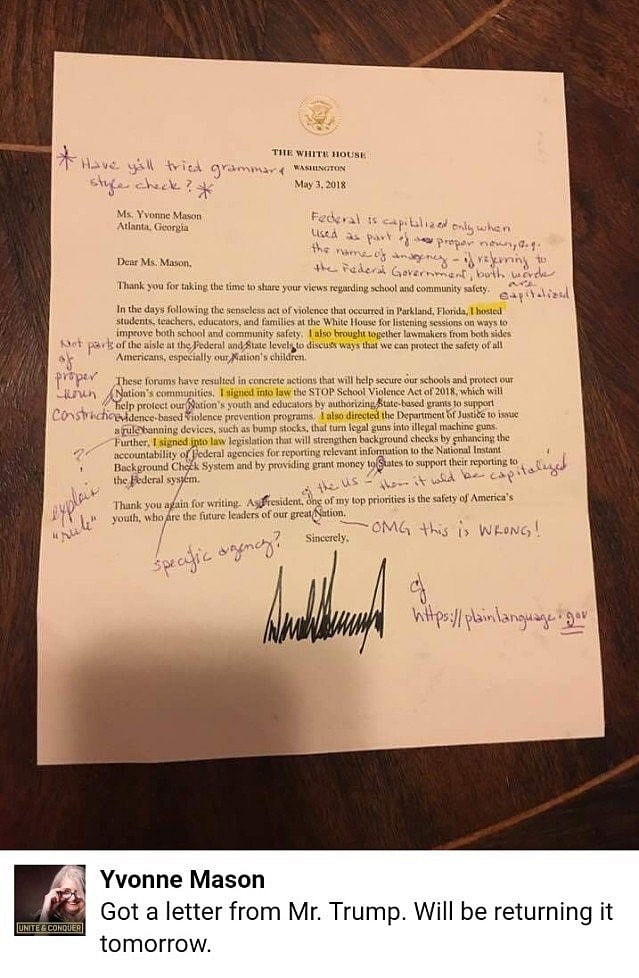 THE WHITE HOUSE
WASHINGTON
May 3, 2018
* Have y'all tried grammar &
style check? *
Ms. Yvonne Mason
Atlanta, Georgia
Federal is capitalized only when
used as part of proper noun, e.g.
the name of an agency - if referring to
the Federal Government, both words
are
capitalized
Dear Ms. Mason,
Thank you for taking the time to share your views regarding school and community safety.
In the days following the senseless act of violence that occurred in Parkland, Florida, I hosted
students, teachers, educators, and families at the White House for listening sessions on ways to
improve both school and community safety. I also brought together lawmakers from both sides
of the aisle at the Federal and State levels to discuss ways that we can protect the safety of all
Americans, especially our Nation's children.
Not part
of
proper
noun
construction
These forums have resulted in concrete actions that will help secure our schools and protect our
Nation's communities. I signed into law the STOP School Violence Act of 2018, which will
help protect our Nation's youth and educators by authorizing State-based grants to support
evidence-based violence prevention programs. I also directed the Department of Justice to issue
a rule banning devices, such as bump stocks, that turn legal guns into illegal machine guns.
Further, I signed into law legislation that will strengthen background checks by enhancing the
accountability of Federal agencies for reporting relevant information to the National Instant
Background Check System and by providing grant money to States to support their reporting to
the Federal system.
?
explain
"rule"
of the US - then it would be capitalized
Thank you again for writing. As President, one of my top priorities is the safety of America's
youth, who are the future leaders of our great Nation.
OMG this is WRONG!
Sincerely,
specific agency?
cf
https://plainlanguage.gov
UNITE & CONQUER
Yvonne Mason
Got a letter from Mr. Trump. Will be returning it
tomorrow.